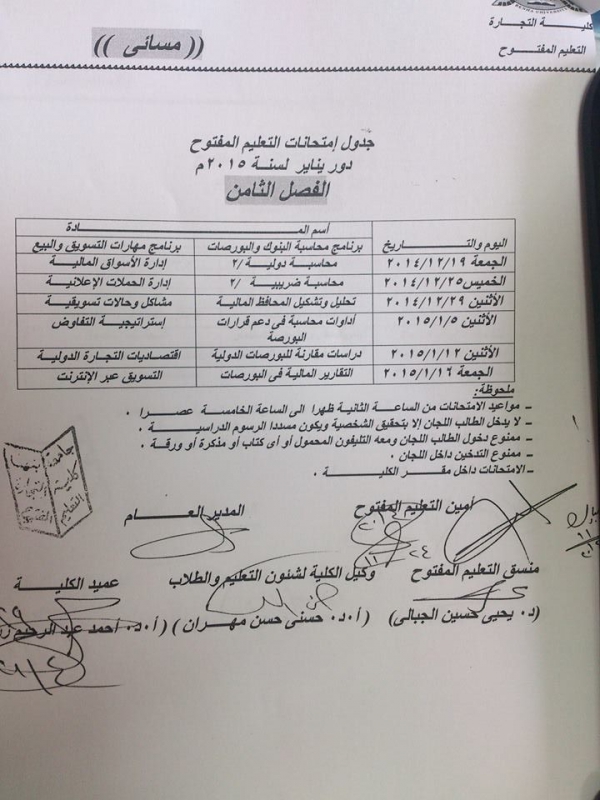 كليـــة التجـارة
التعليم المفتوح
(( مسائى ))
جدول إمتحانات التعليم المفتوح
دور يناير لسنة ٢٠١٥م
الفصل الثامن
اليوم والتـــــــاريخ
أسم المـــــــــــــــادة
برنامج محاسبة البنوك والبورصات
برنامج مهارات التسويق والبيع
الجمعة ٢٠١٤/١٢/١٩ محاسبـة دوليـة /٢ إدارة الأسواق المالية
الخميس ٢٠١٤/١٢/٢٥ محاسبة ضريبية /٢ إدارة الحملات الإعلانية
الأثنين ٢٠١٤/١٢/٢٩ تحليل وتشكيل المحافظ المالية مشاكل وحالات تسويقية
الأثنين ٢٠١٥/١/٥ أداوات محاسبة فى دعم قرارات البورصة إستراتيجية التفاوض
الأثنين ٢٠١٥/١/١٢ دراسات مقارنة للبورصات الدولية اقتصاديات التجارة الدولية
الجمعة ٢٠١٥/١/١٦ التقارير المالية فى البورصات التسويق عبر الإنترنت
ملحوظة:
– مواعيد الامتحانات من الساعة الثانية ظهرا الى الساعة الخامسة عصـرا .
– لا يدخل الطالب اللجان إلا بتحقيق الشخصية ويكون مسددا الرسوم الدراسية .
– ممنوع دخول الطالب اللجان ومعه التليفون المحمول أو أى كتاب أو مذكرة أو ورقة .
– ممنوع التدخين داخل اللجان .
– الامتحانات داخل مقـر الكليـة .
أمين التعليم المفتوح
المدير العـــام
منسق التعليم المفتوح
وكيل الكلية لشئون التعليم والطلاب
عميد الكلية
(د. يحيى حسين الجبالى)
( أ.د. حسنى حسن مهـران )
( أ.د. أحمد عبد الرحيم